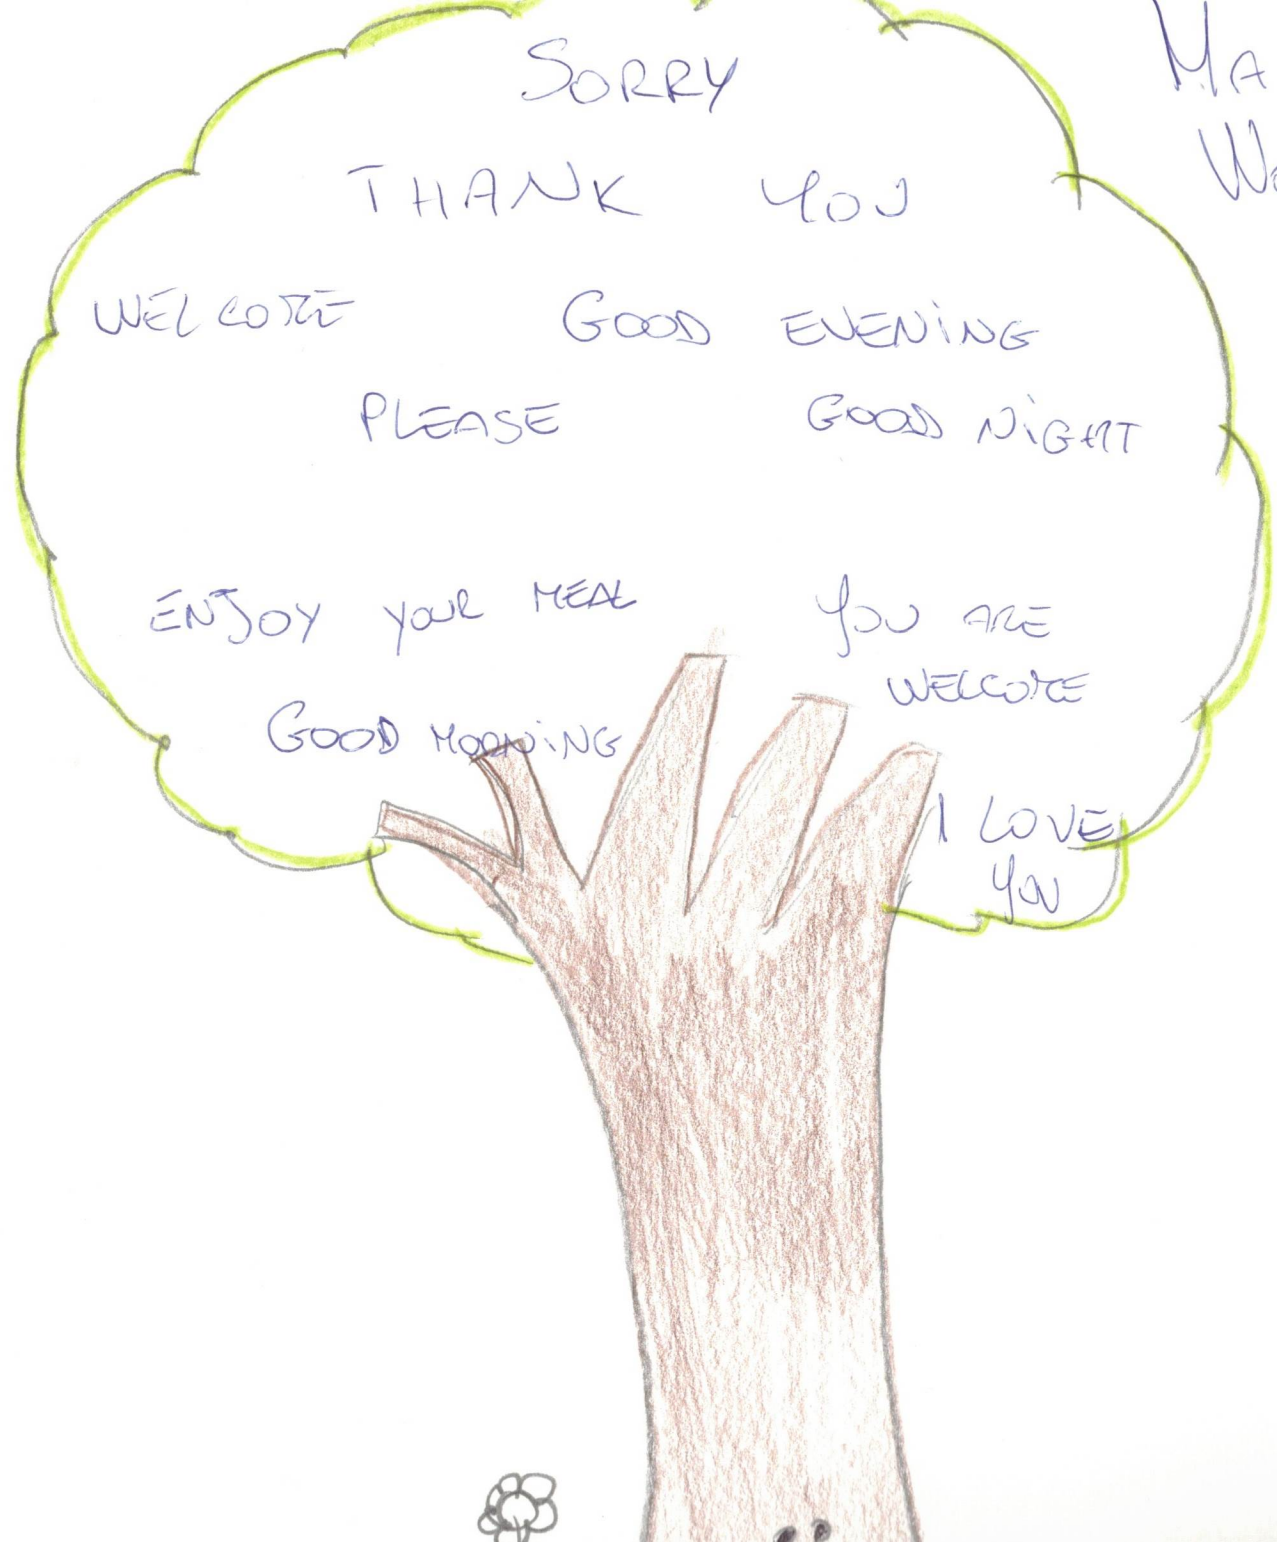 SORRY
THANK YOU
WELCOME GOOD EVENING
PLEASE GOOD NIGHT
ENJOY YOUR MEAL YOU ARE
WELCOME
GOOD MORNING
I LOVE
YOU